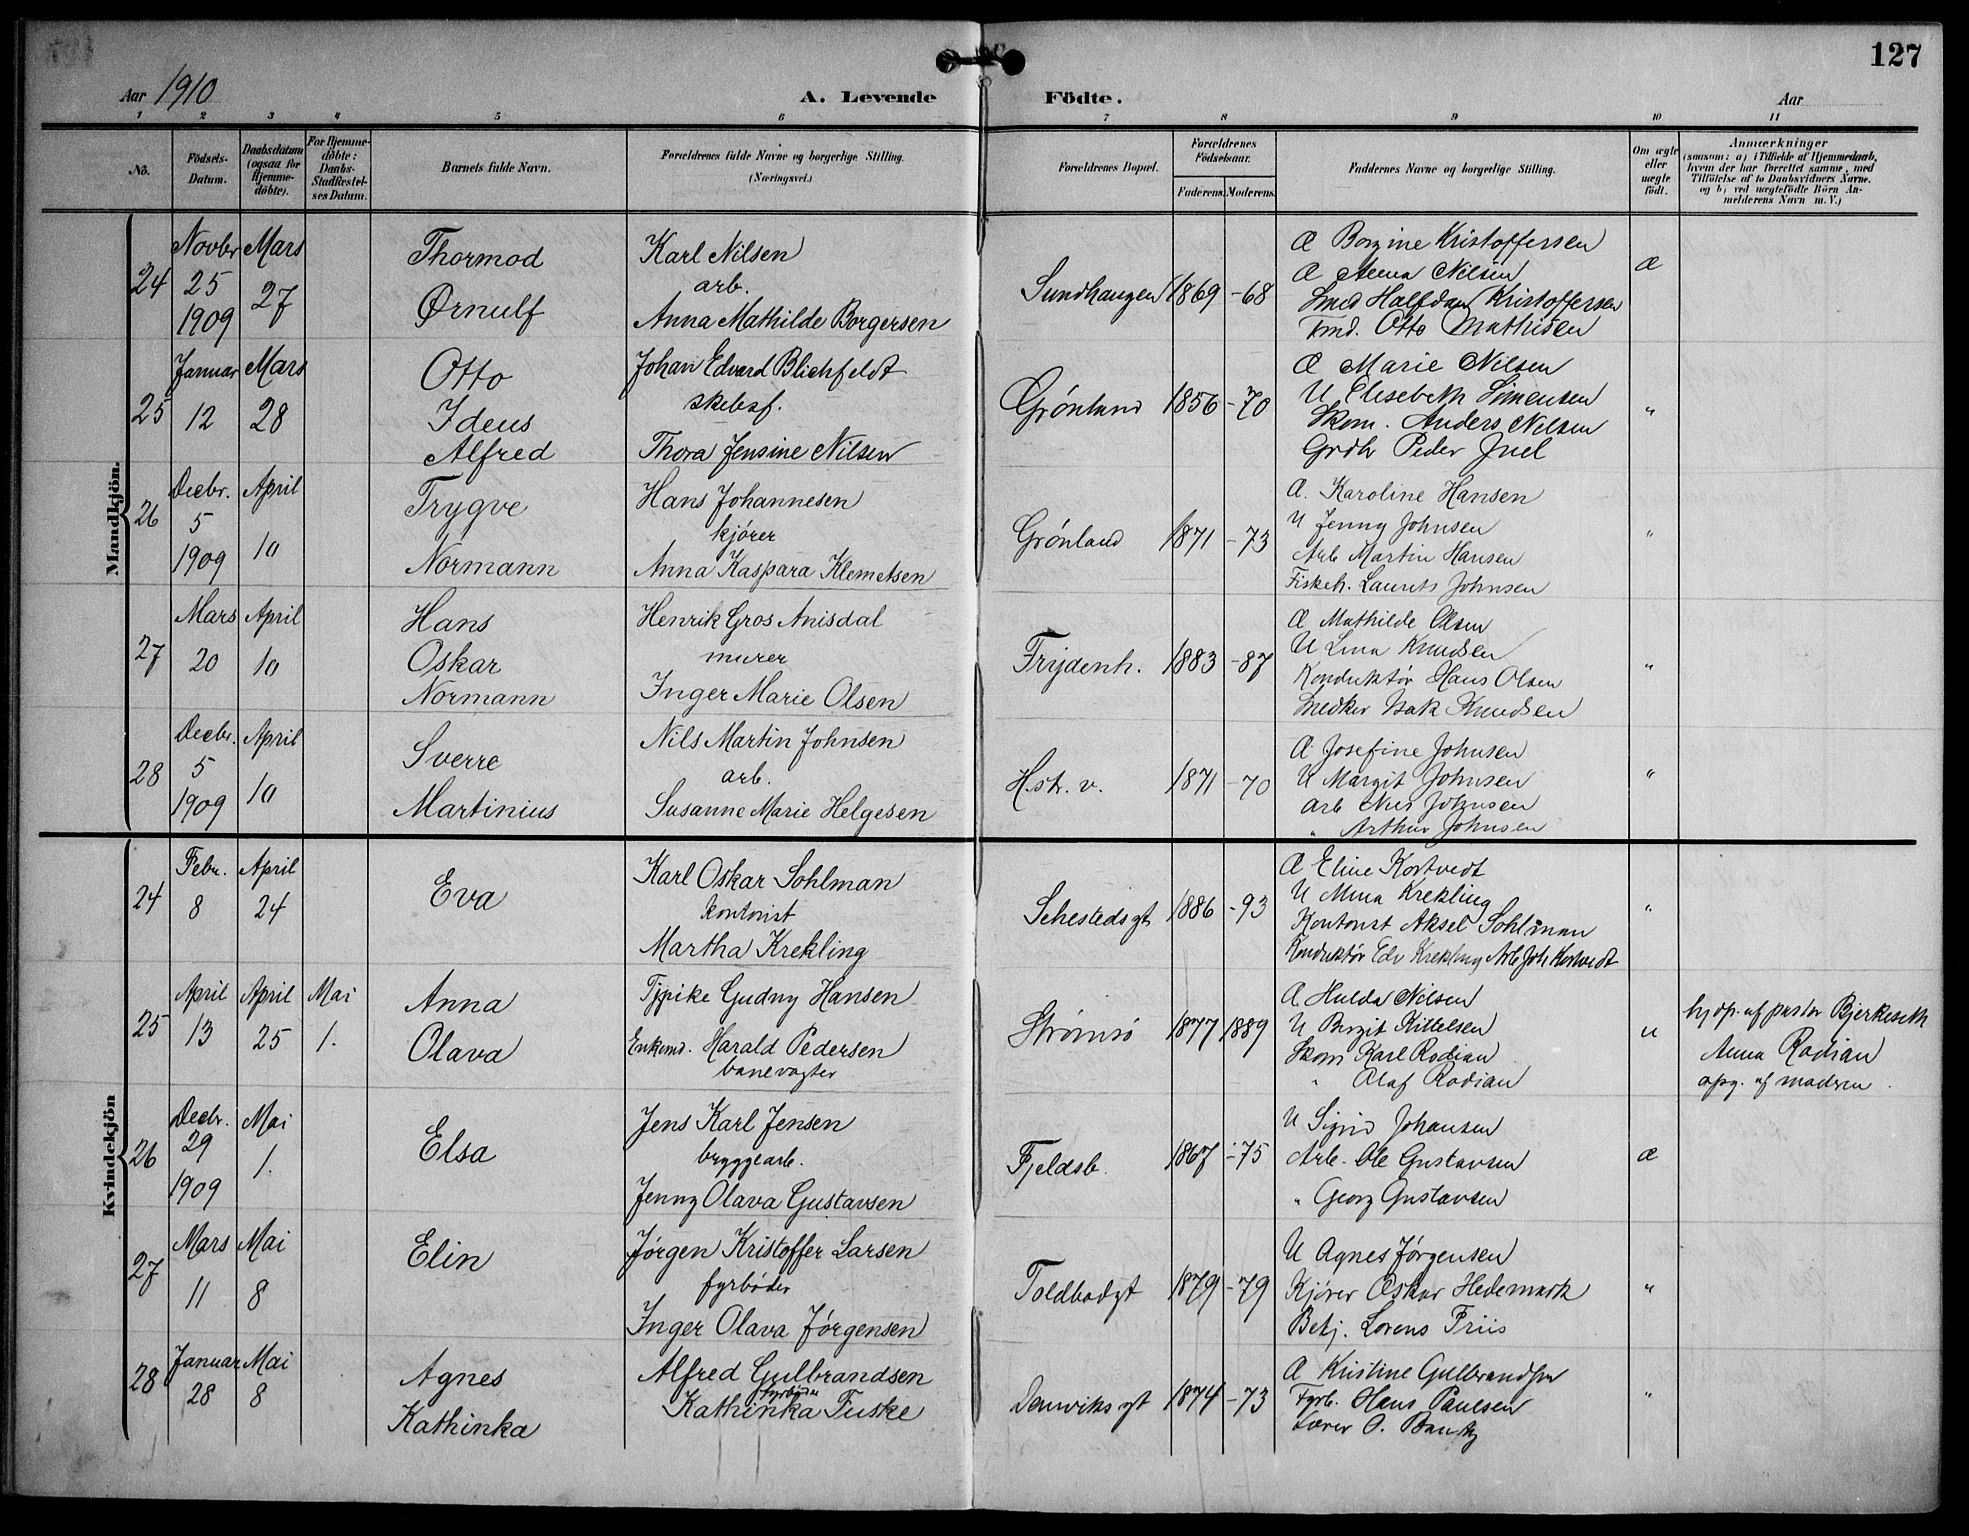 127
Aar 1910
A. Levende Födte.
Aar
1 2 3 4 5 6 7 8 9 10 11
No.
Födsels-Datum.
Daabsdatum (ogsaa for Hjemme-döbte).
For Hjemme-döbte: Daabs-Stadfæstel-ses Datum.
Barnets fulde Navn.
Forældrenes fulde Navne og borgerlige Stilling.
(Næringsvei.)
Forældrenes Bopæl.
Forældrenes Födselsaar.
Faderens. Moderens.
Faddernes Navne og borgerlige Stilling.
Om ægte eller uægte födt.
Anmærkninger
(saasom: a) i Tilfælde af Hjemmedaab,
hvem der har forrettet samme, med
Tilföielse af to Daabsvidners Navne.
og b) ved uægtefödte Börn An-
melderens Navn m. V.)
Mandkjön.
24 Novbr 25 1909 Mars 27
Thormod
Ørnulf
Karl Nilsen
arb.
Anna Mathilde Borgersen
Sundhaugen 1869 -68
Æ Borgine Kristoffersen
Æ Anna Nilsen
Smed Halfdan Kristoffersen
Tmd. Otto Mathisen
Æ
25 Januar 12 Mars 28
Otto
Ideus
Alfred
Johan Edvard Blichfeldt
skibsf.
Thora Jensine Nilsen
Grønland 1856 -70
Æ Marie Nilsen
U Elisebeth Simensen
Skom. Anders Nilsen
Grdbr Peder Juel
"
26 Decbr. 5 1909 April 10
Trygve
Normann
Hans Johannesen
kjører
Anna Kaspara Klemetsen
Grønland 1871 -73
Æ. Karoline Hansen
U Jenny Johnsen
Arb Martin Hansen
Fiskeh. Laurits Johnsen
"
27 Mars 20 April 10
Hans
Oskar
Normann
Henrik Gros Anisdal
murer
Inger Marie Olsen
Frydenh. 1883 -87
Æ Mathilde Olsen
U Lina Knudsen
Konduktør Hans Olsen
Snedker Isak Knudsen
"
28 Decbr. 5 1909 April 10
Sverre
Martinius
Nils Martin Johnsen
arb.
Susanne Marie Helgesen
H.str. v. 1871 -70
Æ Josefine Johnsen
U Margit Johnsen
arb Nils Johnsen
" Arthur Johnsen
"
Kvindekjön
24 Febr. 8 April 24
Eva
Karl Oskar Sohlman
kontorist
Martha Krekling
Sehestedsgt 1886 -93
Æ Eline Kortvedt
U Mina Krekling
Kontorist Aksel Sohlman
Konduktør Edv Krekling Arb Joh Kortvedt
"
25 April 13 April 25 Mai 1.
Anna
Olava
Tjpike Gudny Hansen
Enkemd. Harald Pedersen
banevogter
Strømsø 1877 1889
Æ Hulda Nilsen
U Birgit Kittelsen
Skom Karl Rodian
" Olaf Rodian
U
hjdp. af pastor Bjerkeseth
Anna Rodian
opg. af moderen.
26 Decbr. 29 1909 Mai 1.
Elsa
Jens Karl Jensen
bryggearb.
Jenny Olava Gustavsen
Fjeldsb. 1867 -75
U Signe Johansen
Arb. Ole Gustavsen
" Georg Gustavsen
Æ
27 Mars 11 Mai 8
Elin
Jørgen Kristoffer Larsen
fyrbøder
Inger Olava Jørgensen
Toldbodgt 1879 -79
U Agnes Jørgensen
Kjører Oskar Hedemark
Betj. Lorens Friis
"
28 Januar 28 Mai 8
Agnes
Kathinka
Alfred Gulbrandsen
fyrbøder
Kathinka Fuske
Danviksgt 1874 -73
Æ Kristine Gulbrandsen
Fyrb. Hans Paulsen
Lærer O.
"